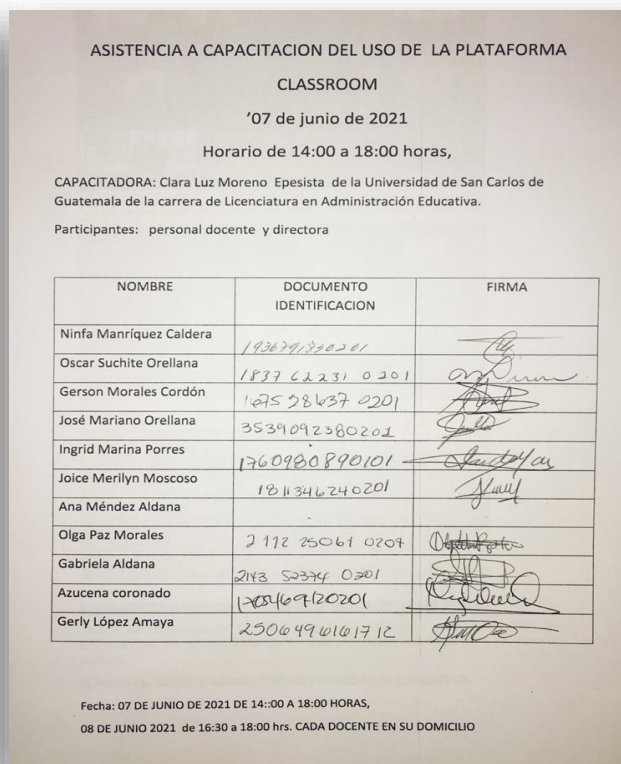 ASISTENCIA A CAPACITACION DEL USO DE LA PLATAFORMA
CLASSROOM
'07 de junio de 2021
Horario de 14:00 a 18:00 horas,
CAPACITADORA: Clara Luz Moreno Epesista de la Universidad de San Carlos de
Guatemala de la carrera de Licenciatura en Administración Educativa.
Participantes: personal docente y directora
NOMBRE DOCUMENTO IDENTIFICACION FIRMA
Ninfa Manríquez Caldera
Oscar Suchite Orellana 1837 62231 0201
Gerson Morales Cordón 1675 28637 0201
José Mariano Orellana 3539092380201
Ingrid Marina Porres 1760980890101
Joice Merilyn Moscoso 1811346240201
Ana Méndez Aldana
Olga Paz Morales 2112 25061 0207
Gabriela Aldana 2143 52374 0201
Azucena coronado
Gerly López Amaya 2506496161712
Fecha: 07 DE JUNIO DE 2021 DE 14::00 A 18:00 HORAS,
08 DE JUNIO 2021 de 16:30 a 18:00 hrs. CADA DOCENTE EN SU DOMICILIO